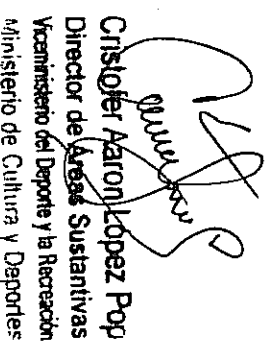 Cristofer Aaron López Pop
Director de Áreas Sustantivas
Viceministerio del Deporte y la Recreación
Ministerio de Cultura y Deportes